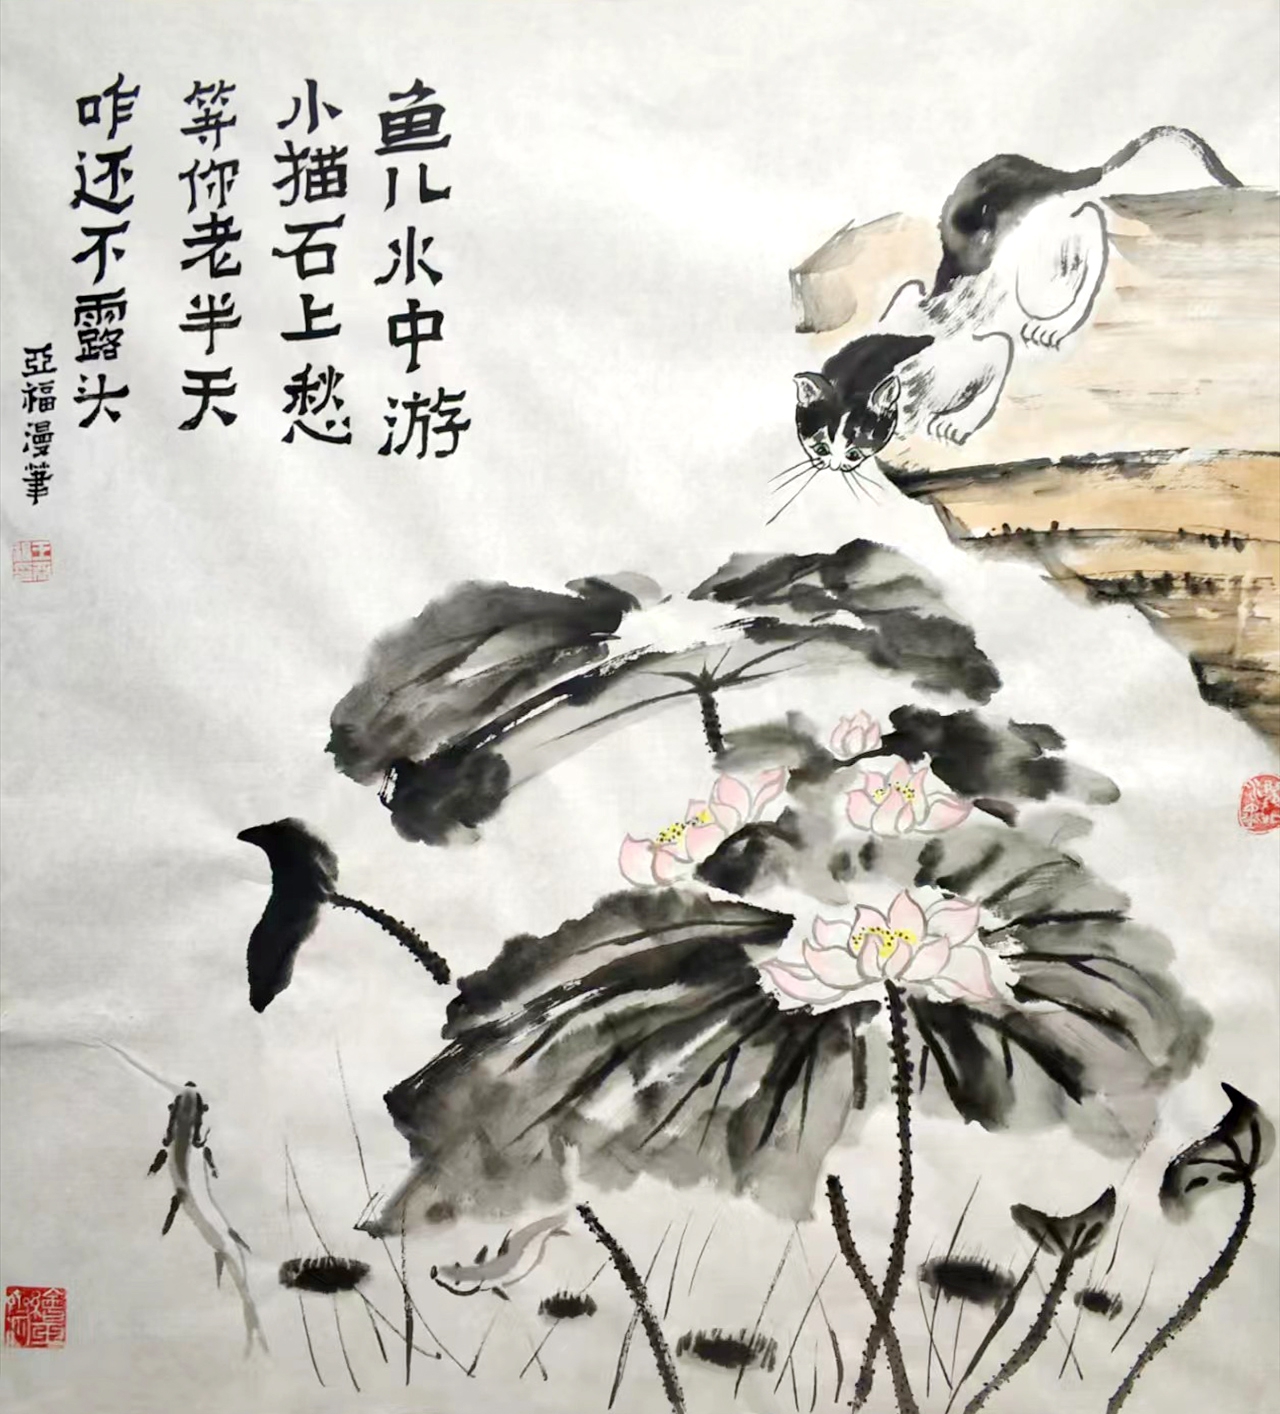 鱼儿水中游
小猫石上愁
等你老半天
咋还不露头
亞福漫筆